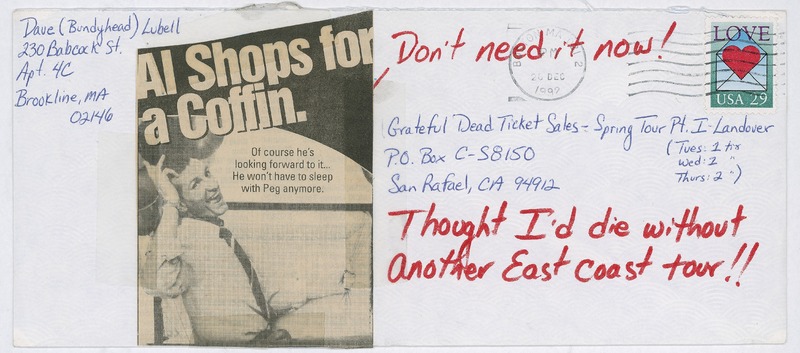 Dave (Bundyhead) Lubell
230 Babcock St.
Apt. 4C
Brookline, MA
02146
Al Shops for
a Coffin.
Of course he's
looking forward to it...
He won't have to sleep
with Peg anymore.
Don't need it now!
PM
26 DEC
1992
LOVE
USA 29
Grateful Dead Ticket Sales - Spring Tour Pt. I - Landover
P.O. Box C-S8150
San Rafael, CA 94912
(Tues: 1 tix
Wed: 2 "
Thurs: 2 ")
Thought I'd die without
another East coast tour!!